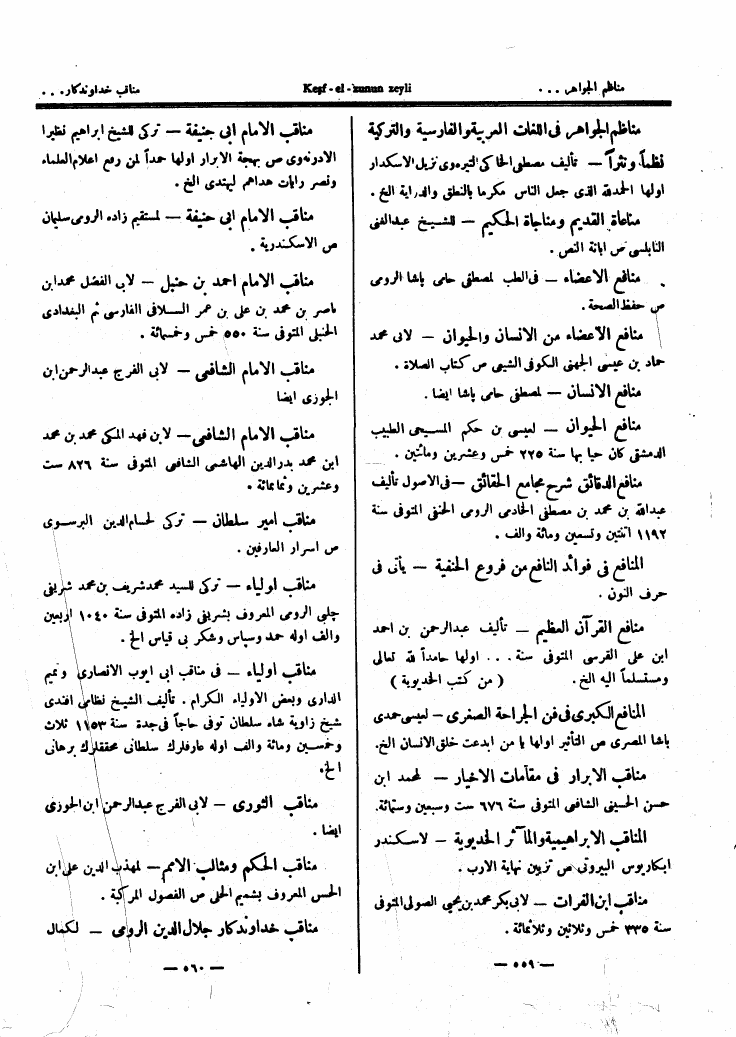 مناظم الجواهر ...
Keşf - el - zunun zeyli
مناقب خداوندكار ...
مناظم الجواهر فى اللغات العربية والفارسية والتركية
نظماً ونثراً — تأليف مصطفى الخاكى التيره‌وى نزيل الاسكدار
اولها الحمدلله الذى جعل الناس مكرما بالنطق والدراية الخ .
مناغاة القديم ومناجاة الحكيم — للشيخ عبدالغنى
النابلسى ص ابانة النص .
منافع الاعضاء — فى الطب لمصطفى حامى پاشا الرومى
ص حفظ الصحة .
منافع الأعضاء من الانسان والحيوان — لابى محمد
حماد بن عيسى الجهنى الكوفى الشيعى ص كتاب الصلاة .
منافع الانسان — لمصطفى حامى پاشا ايضا .
منافع الحيوان — لعيسى بن حكم المسيحى الطبيب
الدمشقى كان حيا بها سنة ٢٢٥ خمس وعشرين ومائتين .
منافع الدقائق شرح مجامع الحقائق — فى الاصول تأليف
عبدالله بن محمد بن مصطفى الخادمى الرومى الحنفى المتوفى سنة
١١٩٢ اثنتين وتسعين ومائة والف .
المنافع فى فوائد النافع من فروع الحنفية — يأتى فى
حرف النون .
منافع القرآن العظيم — تأليف عبدالرحمن بن احمد
ابن على القرسى المتوفى سنة ... اولها حامداً لله تعالى
ومستسلماً اليه الخ . ( من كتب الخديوية )
المنافع الكبرى فى فن الجراحة الصغرى — لعيسى حمدى
پاشا المصرى ص التأثير اولها يا من ابدعت خلق الانسان الخ .
مناقب الابرار فى مقامات الاخيار — لمحمد ابن
حسن الحسينى الشافعى المتوفى سنة ٦٧٦ ست وسبعين وستمائة .
المناقب الابراهيمية والمآثر الخديوية — لاسكندر
ابكاريوس البيروتى ص تزيين نهاية الارب .
مناقب ابن الفرات — لابى بكر محمد بن يحيى الصولى المتوفى
سنة ٣٣٥ خمس وثلاثين وثلاثمائة .
— ٥٥٩ —
مناقب الامام ابى حنيفة — تركى للشيخ ابراهيم نظيرا
الادرنه‌وى ص بهجة الابرار اولها حمداً لمن رفع اعلام العلماء
ونصر رايات هداهم ليهتدى الخ .
مناقب الامام ابى حنيفة — لمستقيم زاده الرومى سليمان
ص الاسكندرية .
مناقب الامام احمد بن حنبل — لابى الفضل محمد ابن
ناصر بن محمد بن على بن عمر السلافى الفارسى ثم البغدادى
الحنبلى المتوفى سنة ٥٥٠ خمس وخمسمائة .
مناقب الامام الشافعى — لابى الفرج عبدالرحمن ابن
الجوزى ايضا
مناقب الامام الشافعى — لابن فهد المكى محمد بن محمد
ابن محمد بدرالدين الهاشمى الشافعى المتوفى سنة ٨٢٦ ست
وعشرين وثمانمائة .
مناقب امير سلطان — تركى لحسام الدين البرسوى
ص اسرار العارفين .
مناقب اولياء — تركى للسيد محمد شريف بن محمد شريفى
چلبى الرومى المعروف بشريفى زاده المتوفى سنة ١٠٤٠ اربعين
والف اوله حمد وسپاس وشكر بى قياس الخ .
مناقب اولياء — فى مناقب ابى ايوب الانصارى وتميم
الدارى وبعض الاولياء الكرام . تأليف الشيخ نظامى افندى
شيخ زاوية شاه سلطان توفى حاجاً فى جدة سنة ١١٥٣ ثلاث
وخمسين ومائة والف اوله عارفلرك سلطانى محققلرك برهانى
الخ .
مناقب الثورى — لابى الفرج عبدالرحمن ابن الجوزى
ايضا .
مناقب الحكم ومثالب الامم — لمهذب الدين على ابن
الحسن المعروف بشميم الحلى ص الفصول المركبة .
مناقب خداوندكار جلال الدين الرومى — لكمال
— ٥٦٠ —